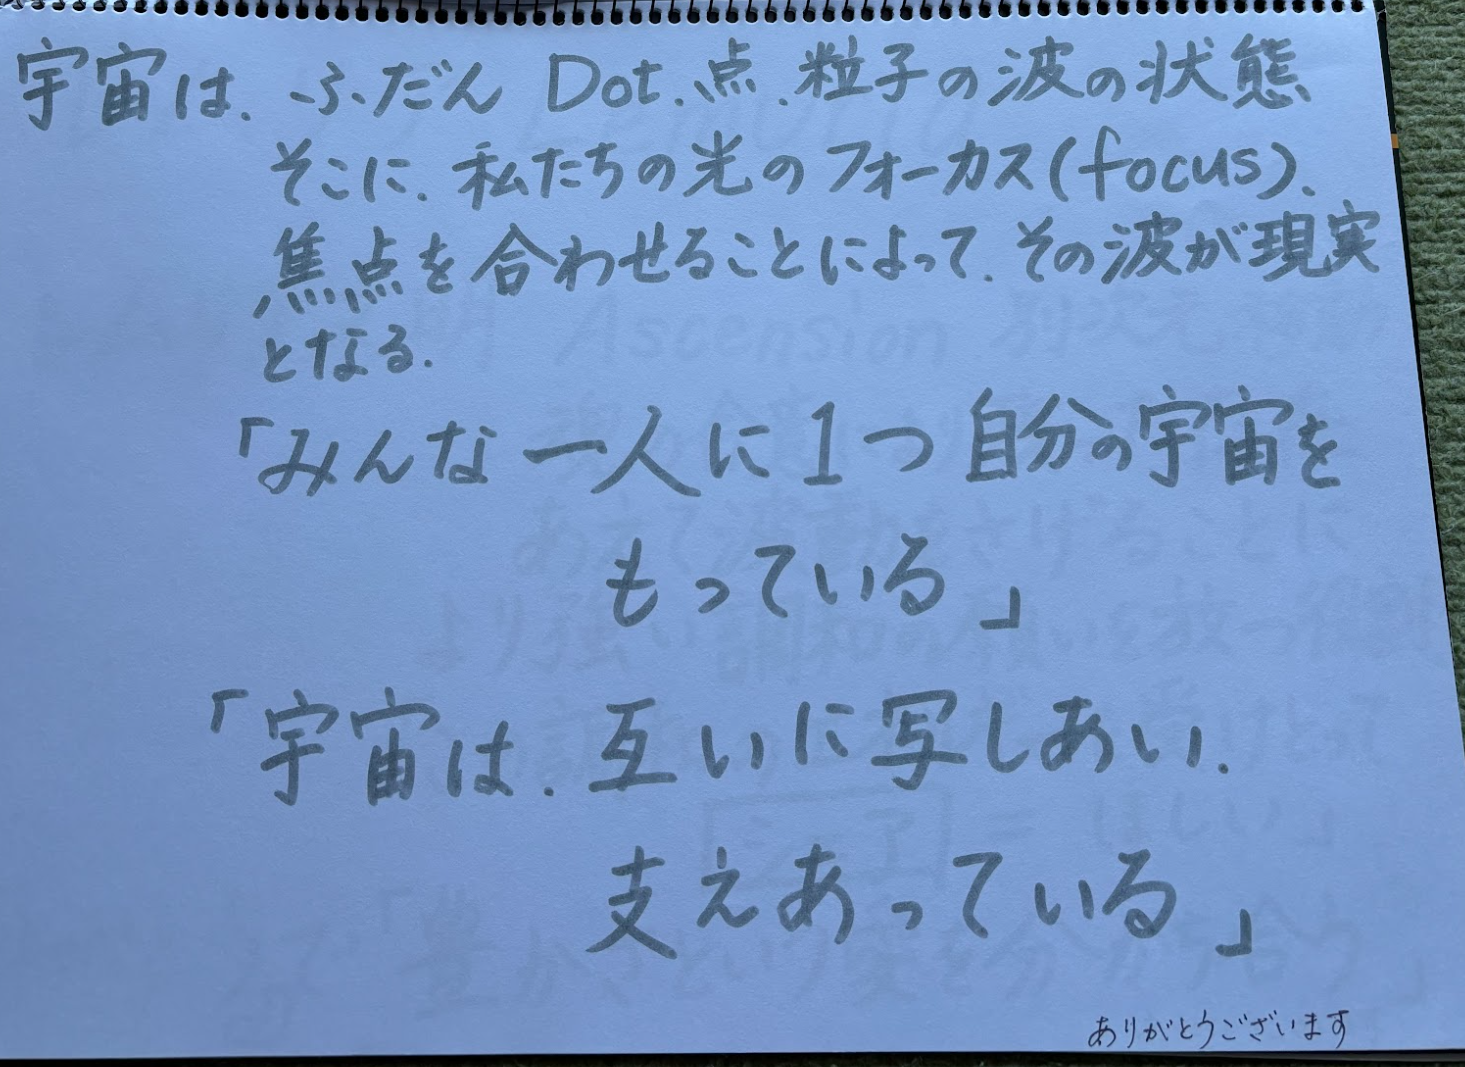 宇宙は、ふだん Dot、点、粒子の波の状態
そこに、私たちの光のフォーカス(focus)、
焦点を合わせることによって、その波が現実
となる.
「みんな 一人に1つ 自分の宇宙を
もっている」
「宇宙は、互いに写しあい、
支えあっている」
ありがとうございます